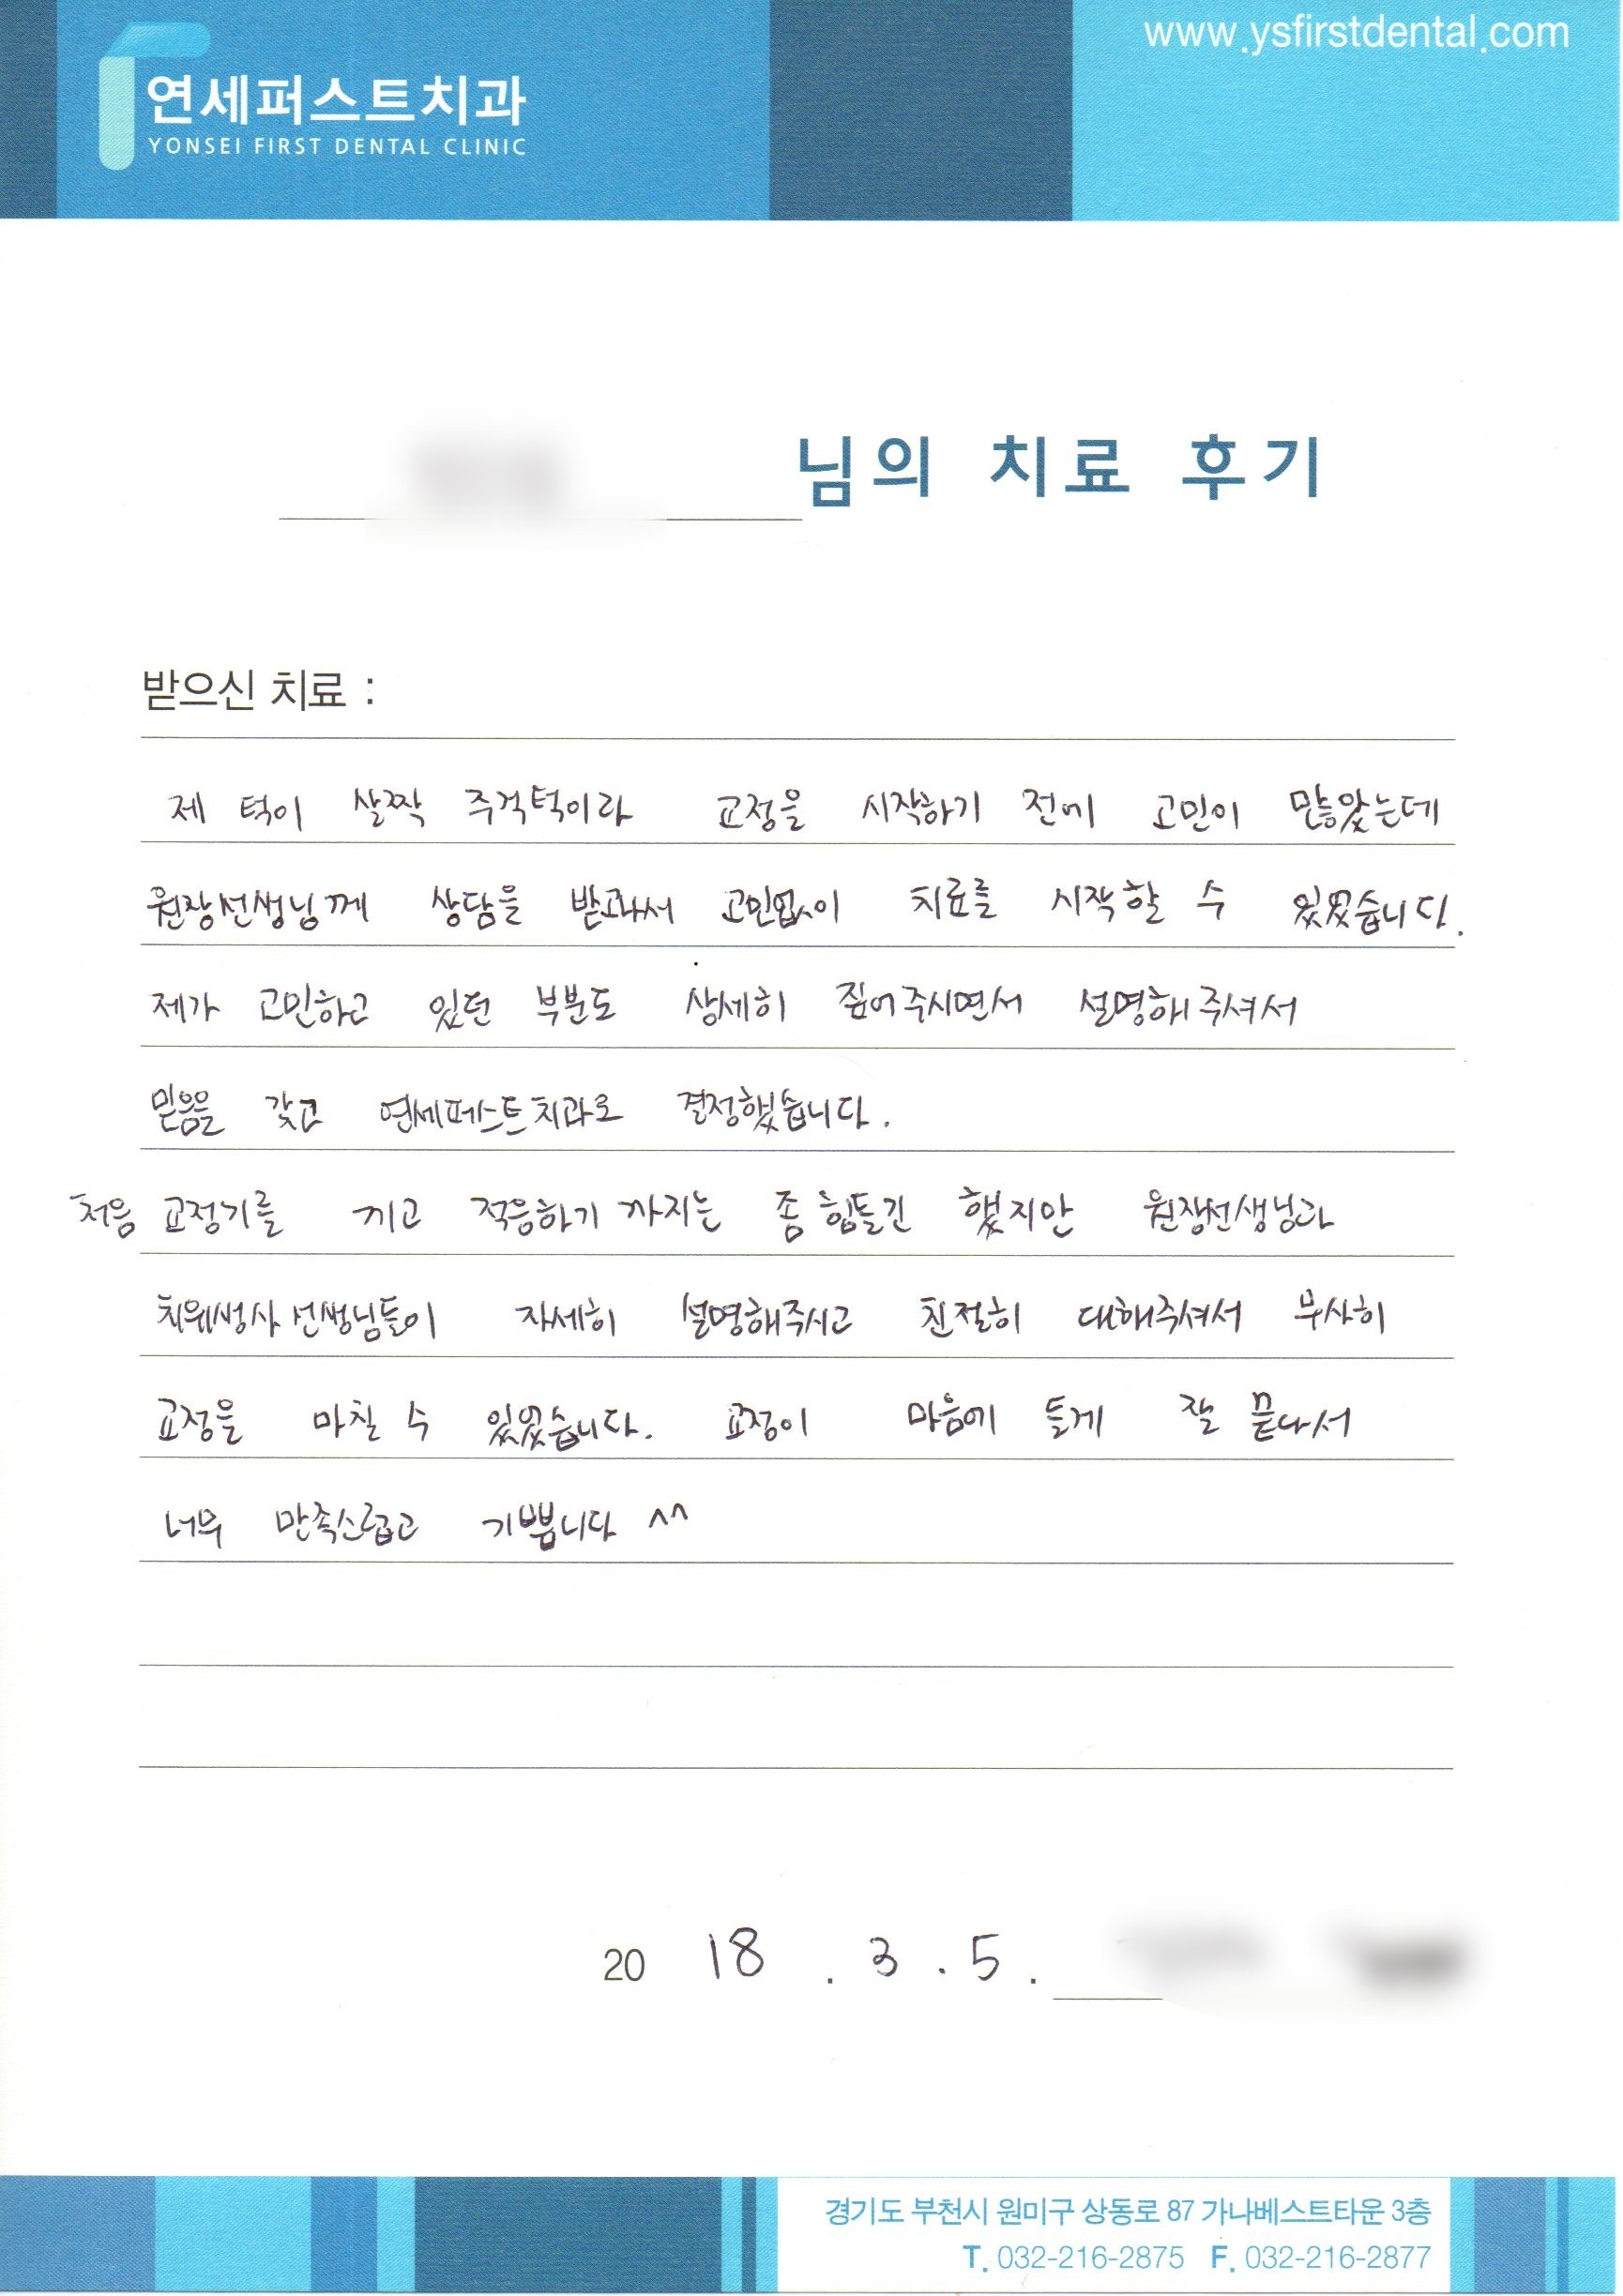 www.ysfirstdental.com
연세퍼스트치과
YONSEI FIRST DENTAL CLINIC
님의 치료 후기
받으신 치료 :
제 턱이 살짝 주걱턱이라 교정을 시작하기 전에 고민이 많았는데
원장선생님께 상담을 받고나서 고민없이 치료를 시작할 수 있었습니다.
제가 고민하고 있던 부분도 상세히 짚어주시면서 설명해주셔서
믿음을 갖고 연세퍼스트치과로 결정했습니다.
처음 교정기를 끼고 적응하기 까지는 좀 힘들긴 했지만 원장선생님과
치위생사 선생님들이 자세히 설명해주시고 친절히 대해주셔서 무사히
교정을 마칠 수 있었습니다. 교정이 마음에 들게 잘 끝나서
너무 만족스럽고 기쁩니다 ^^
20 18 . 3 . 5 .
경기도 부천시 원미구 상동로 87 가나베스트타운 3층
T. 032-216-2875 F. 032-216-2877